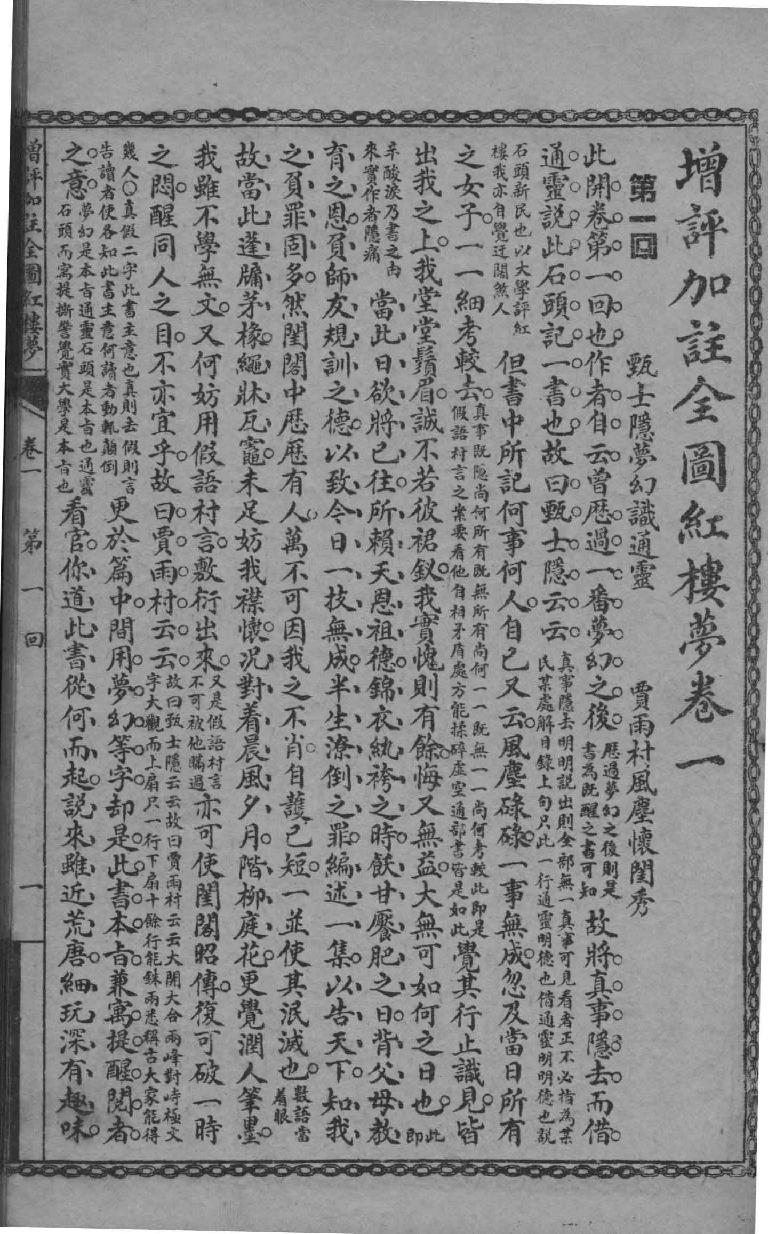 增評加註全圖紅樓夢卷一
第一回　甄士隱夢幻識通靈　賈雨村風塵懷閨秀
此開卷第一回也作者自云曾歷過一番夢幻之後歷過夢幻之後則是書為既醒之書可知故將真事隱去而借
通靈說此石頭記一書也故曰甄士隱云云真事隱去明明說出則全部無一真事可見看者正不必指為某民某處解目錄上句只此一行通靈明德也借通靈明明德也說
石頭新民也以大學評紅樓我亦自覺迂闊煞人但書中所記何事何人自己又云風塵碌碌一事無成忽及當日所有
之女子一一細考較去真事既隱尚何所有既無所有尚何一一既無一一尚何考較此即是假語村言之案要看他自相矛盾處方能揉碎虛空通部書皆是如此覺其行止識見皆
出我之上我堂堂鬚眉誠不若彼裙釵我實愧則有餘悔又無益大無可如何之日也此即
辛酸淚乃書之由來實作者隱痛當此日欲將已往所賴天恩祖德錦衣紈袴之時飫甘饜肥之日背父母教
育之恩負師友規訓之德以致今日一技無成半生潦倒之罪編述一集以告天下知我
之負罪固多然閨閣中歷歷有人萬不可因我之不肖自護己短一並使其泯滅也數語當着眼
故當此蓬牖茅椽繩牀瓦竈未足妨我襟懷況對着晨風夕月階柳庭花更覺潤人筆墨
我雖不學無文又何妨用假語村言敷衍出來又是假語村言不可被他瞞過亦可使閨閣昭傳復可破一時
之悶醒同人之目不亦宜乎故曰賈雨村云云故曰甄士隱云云故曰賈雨村云云大開大合兩峰對峙極文字大觀而上扇只一行下扇十餘行能銖兩悉稱古大家能得
幾人○真假二字此書主意也真則去假則言告讀者使各知此書主意何請者動輒顛倒更於篇中間用夢幻等字却是此書本旨兼寓提醒閱者
之意夢幻是本旨通靈石頭是本旨也通靈石頭而寓提撕警覺實大學是本旨也看官你道此書從何而起說來雖近荒唐細玩深有趣味
增評加註全圖紅樓夢　卷一　第一回　一